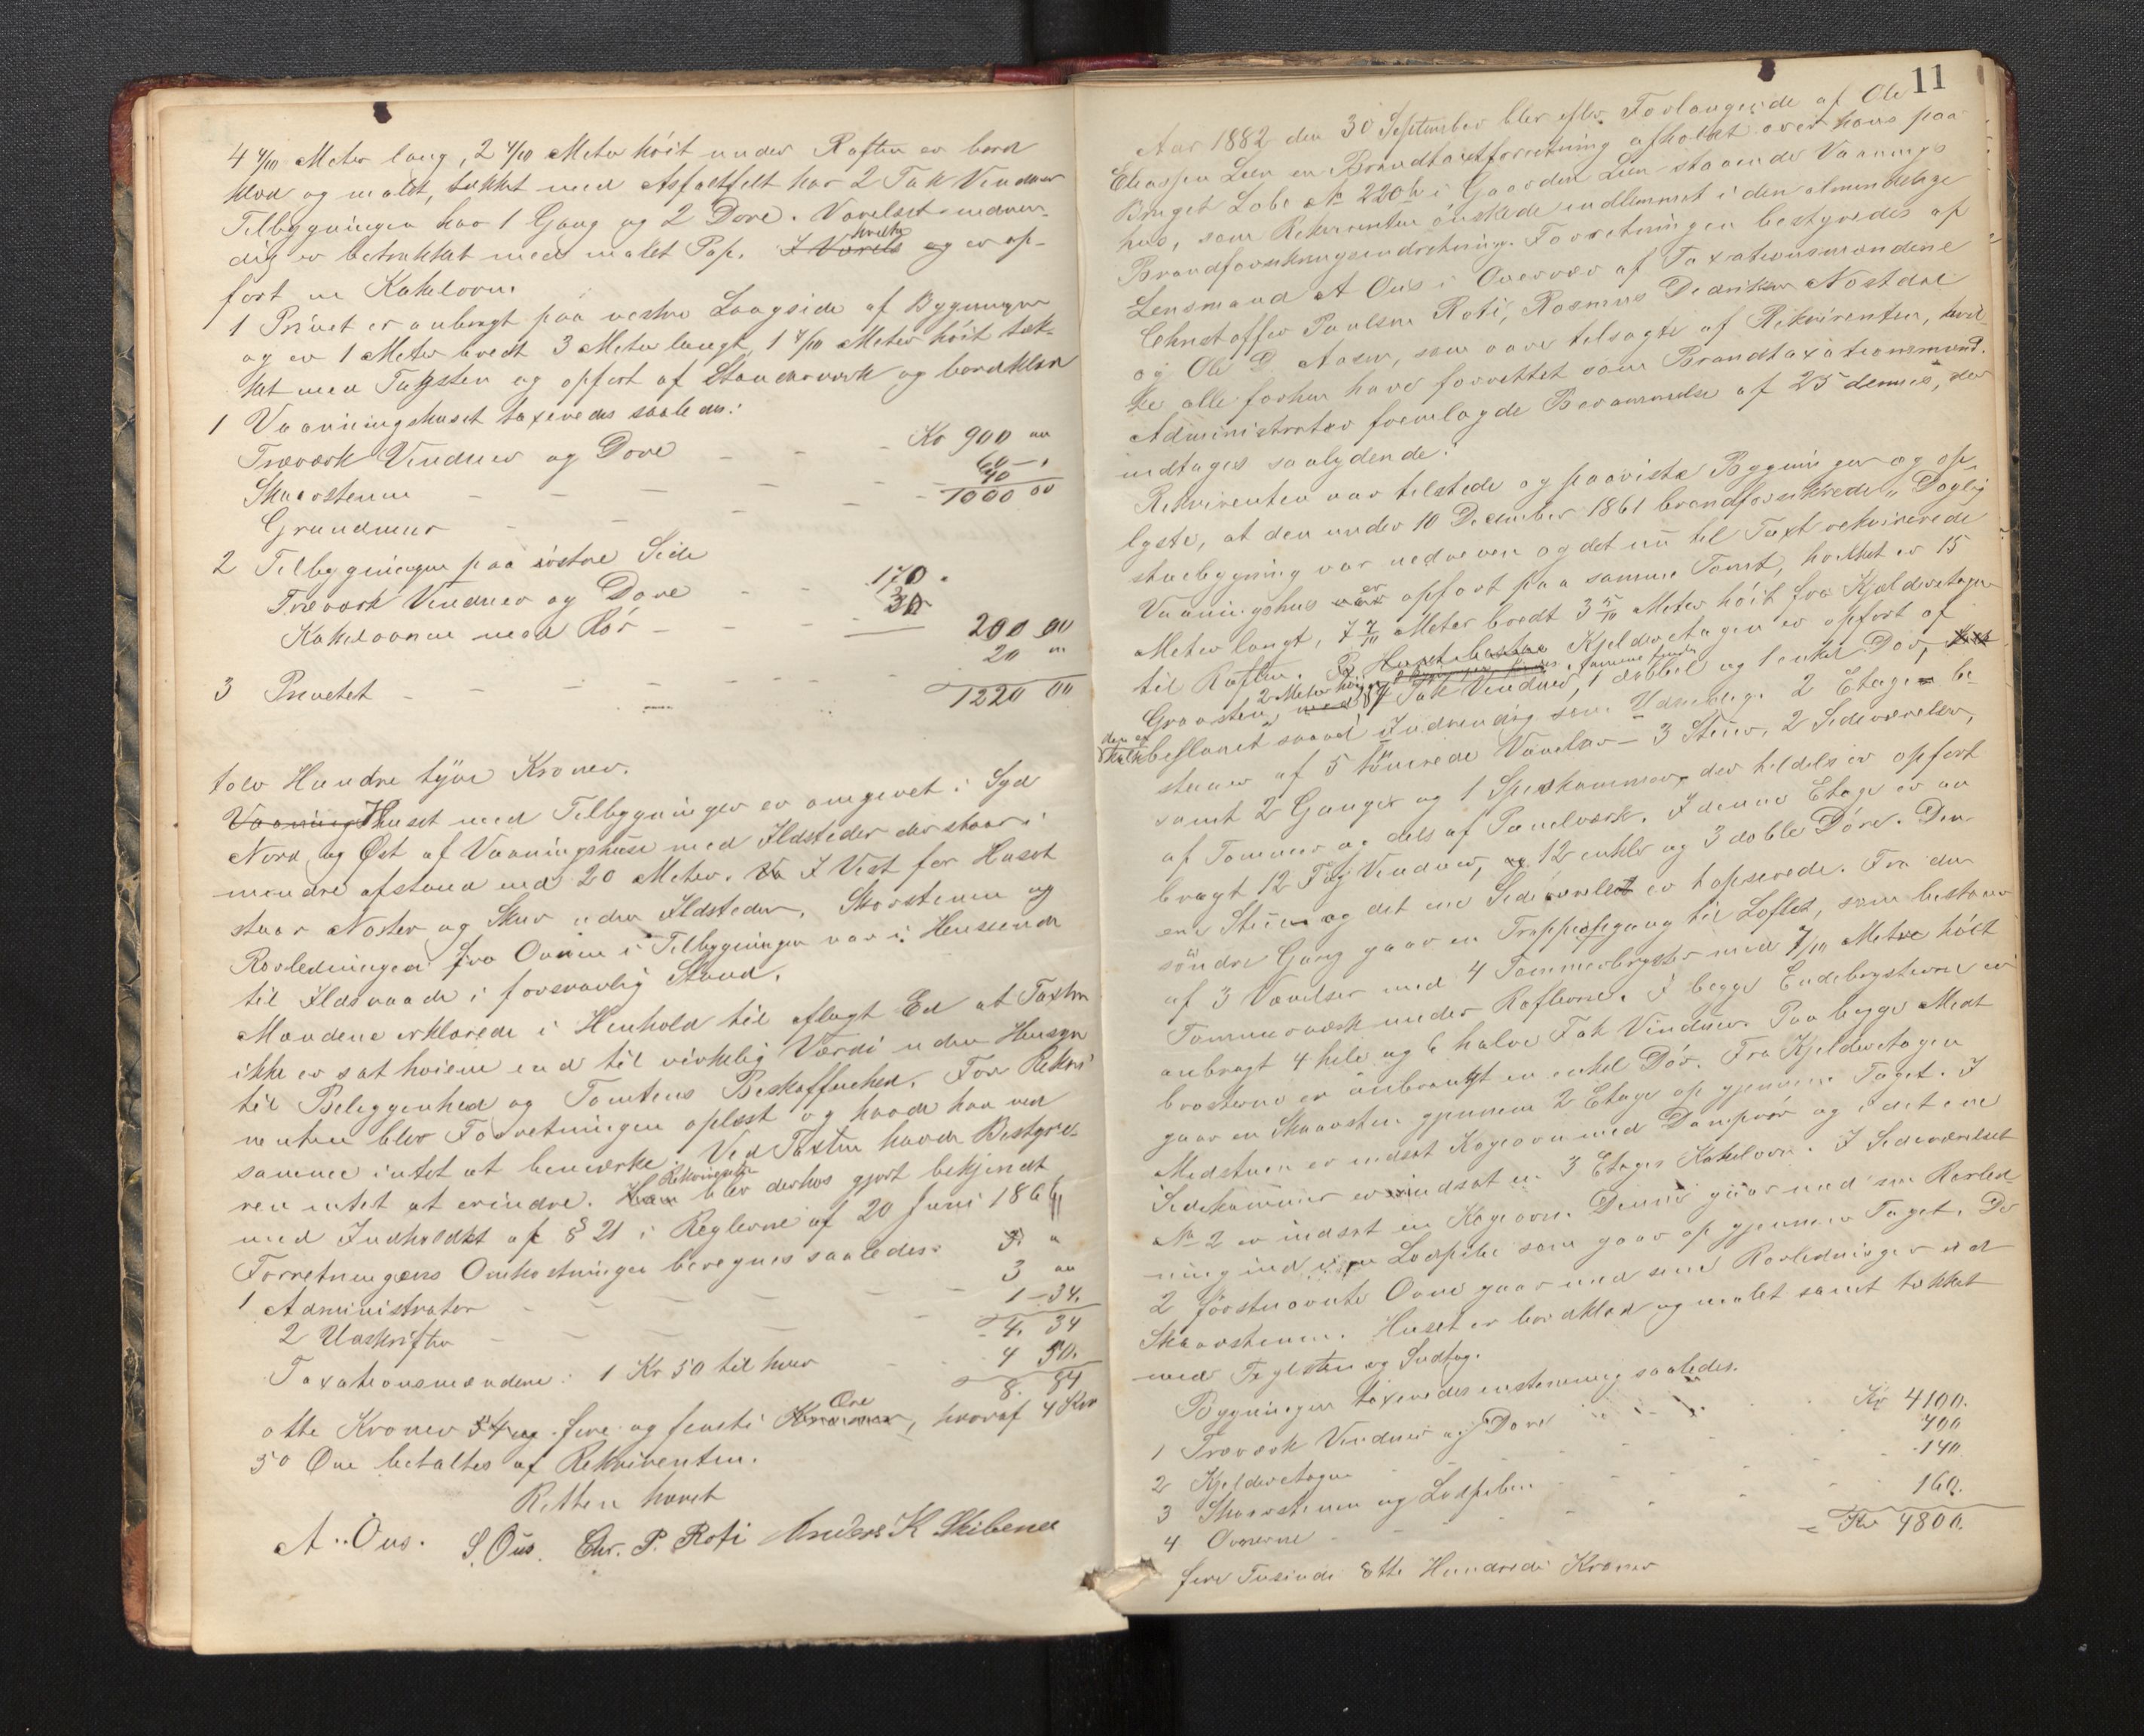 4 4/10 Meter lang, 2 4/10 Meter höit under Raften er bord
klæd og malet, tækket med Asfaltfelt har 2 Fak Vinduer
Tilbygningen har 1 Gang og 2 Døre. Værelset indven-
dig er betrukket med malet Pap. og er op-
ført en Kakelovn.
1 Privet er anbragt paa vestre Langside af Bygningen
og er 1 Meter bredt 3 Meter langt, 1 4/10 Meter höit tæk-
ket med Tagsten og opført af Standerværk og bordklæd
1 Vaaningshuset taxeredes saaledes:
Træværk Vinduer og Døre - - - Kr 900 "
Skorstenen - - - - 60 - "
Grundmur - - - 40
1000 00
2 Tilbygningen paa östre Side
Træværk Vinduer og Døre - - 170 "
Kakelovnen med Rör - - 30
200 00
3 Privetet - - - - - 20 "
1220 00
tolv Hundre tyve Kroner.
Vaanings Huset med Tilbygninger er omgivet i Syd
Nord og Øst af Vaaningshuse med Ildsteder der staar i
mindre afstand end 20 Meter. I Vest for Huset
staar Nøster og Skur uden Ildsteder. Skorstenen og
Rørledningen fra Ovnen i Tilbygningen var i Henseende
til Ildsvaade i forsvarlig Stand.
Mændene erklærede i Henhold til aflagt Ed at Taxten
ikke er sat høiere end til virkelig Værdi uden Hensyn
til Beliggenhed og Tomtens Beskaffenhed. For Rekvi
renten blev Forretningen oplæst og havde han ved
samme intet at bemærke. Ved Taxten havde Bestyre-
ren intet at erindre. Han Rekvirenten blev derhos gjort bekjendt
med Indholdet af § 21 i Reglerne af 20 Juni 1866
Forretningens Omkostninger beregnes saaledes:
1 Administrator - - - - - 3 "
2 Udskrifter - - - - 1 - 34.
4. 34
Taxationsmændene: 1 Kr 50 til hver - - 4 50.
8. 84
otte Kroner fire og firsti Kroner Øre, hvoraf 4 Kr
50 Øre betaltes af Rekvirenten.
Retten hævet
A. Ous. S. Ous. Chr. P. Roti Anders K Skibenes
11
Aar 1882 den 30 September blev efter Forlangende af Ole
Eliassen Lien en Brandtaxtforretning afholdt over hans paa
Bruget Løbe No 220b i Gaarden Lien staaende Vaanings
hus, som Rekvirenten ønskede indlemmet i den almindelige
Brandforsikringsindretning. Forretningen bestyredes af
Lensmand A Ous i Overvær af Taxationsmændene
Christoffer Paulsen Roti, Rasmus Nøstdal
og Ole D. Aasen, som vare tilsagte af Rekvirenten, hvil-
ke alle forhen have forrettet som Brandtaxationsmænd.
Administrator fremlagde Berammelse af 25 dennes, der
indtages saalydende:
Rekvirenten var tilstede og paaviste Bygninger og op-
lyste, at den under 10 December 1861 brandforsikrede "Daglig
stuebygning var nedreven og det nu til Taxt rekvirerede
Vaaningshus er opført paa samme Tomt, hvilket er 15
Meter langt, 7 7/10 Meter bredt 3 5/10 Meter höit fra Kjelderetagen
til Raften. Huset bestaar Kjelderetagen er opført af
Graasten 2 Meter höi Fak Vinduer, 1 dobbel og 1 enkel Dør,
beslaaet saavel Indvendig som Udvendig. 2 Etage be-
staaer af 5 tömrede Værelser - 3 Stuer, 2 Sideværelser,
samt 2 Gange og 1 Speskammer, der tildels er opført
af Tømmer og dels af Panelværk. I denne Etage er an
bragt 12 Fag Vinduer, 12 enkle og 3 doble Döre. Den
ene Stue og det ene Sideværelset er tapserede. Fra den
søndre Gang gaar en Trappeopgang til Loftet, som bestaar
af 3 Værelser med 4 Tømmerbryster med 7/10 Meter höit
Tømmerværk under Rafterne. I begge Endebrysterne er
anbragt 4 hele og 6 halve Fak Vinduer. Paa begge Midt
brysterne er anbragt en enkel Dör. Fra Kjelderetagen
gaar en Skorsten gjennem 2 Etage op gjennem Taget. I
Midstuen er indsat Kogeovn med Damprör og i det ene
Sidekammer er indsat en 3 Etages Kakelovn. I Sideværelset
No 2 er indsat en Kogeovn. Denne gaar med sin Rørled-
ning ind i en Lodpibe som gaar op gjennem Taget. De
2 förstnævnte Ovne gaar med sine Rørledninger ind
Skorstenen. Huset er bordklæd og malet samt tækket
med Teglsten og Sudtag.
Bygningen taxeredes enstemmig saaledes.
1 Træværk Vinduer og Døre - - - Kr 4100.
2 Kjelderetagen - - - 400
3 Skorstenen og Lodpiben - - - 140
4 Ovnerne - - - - 160.
= Kr 4800.
fire Tusinde otte Hundrede Kroner